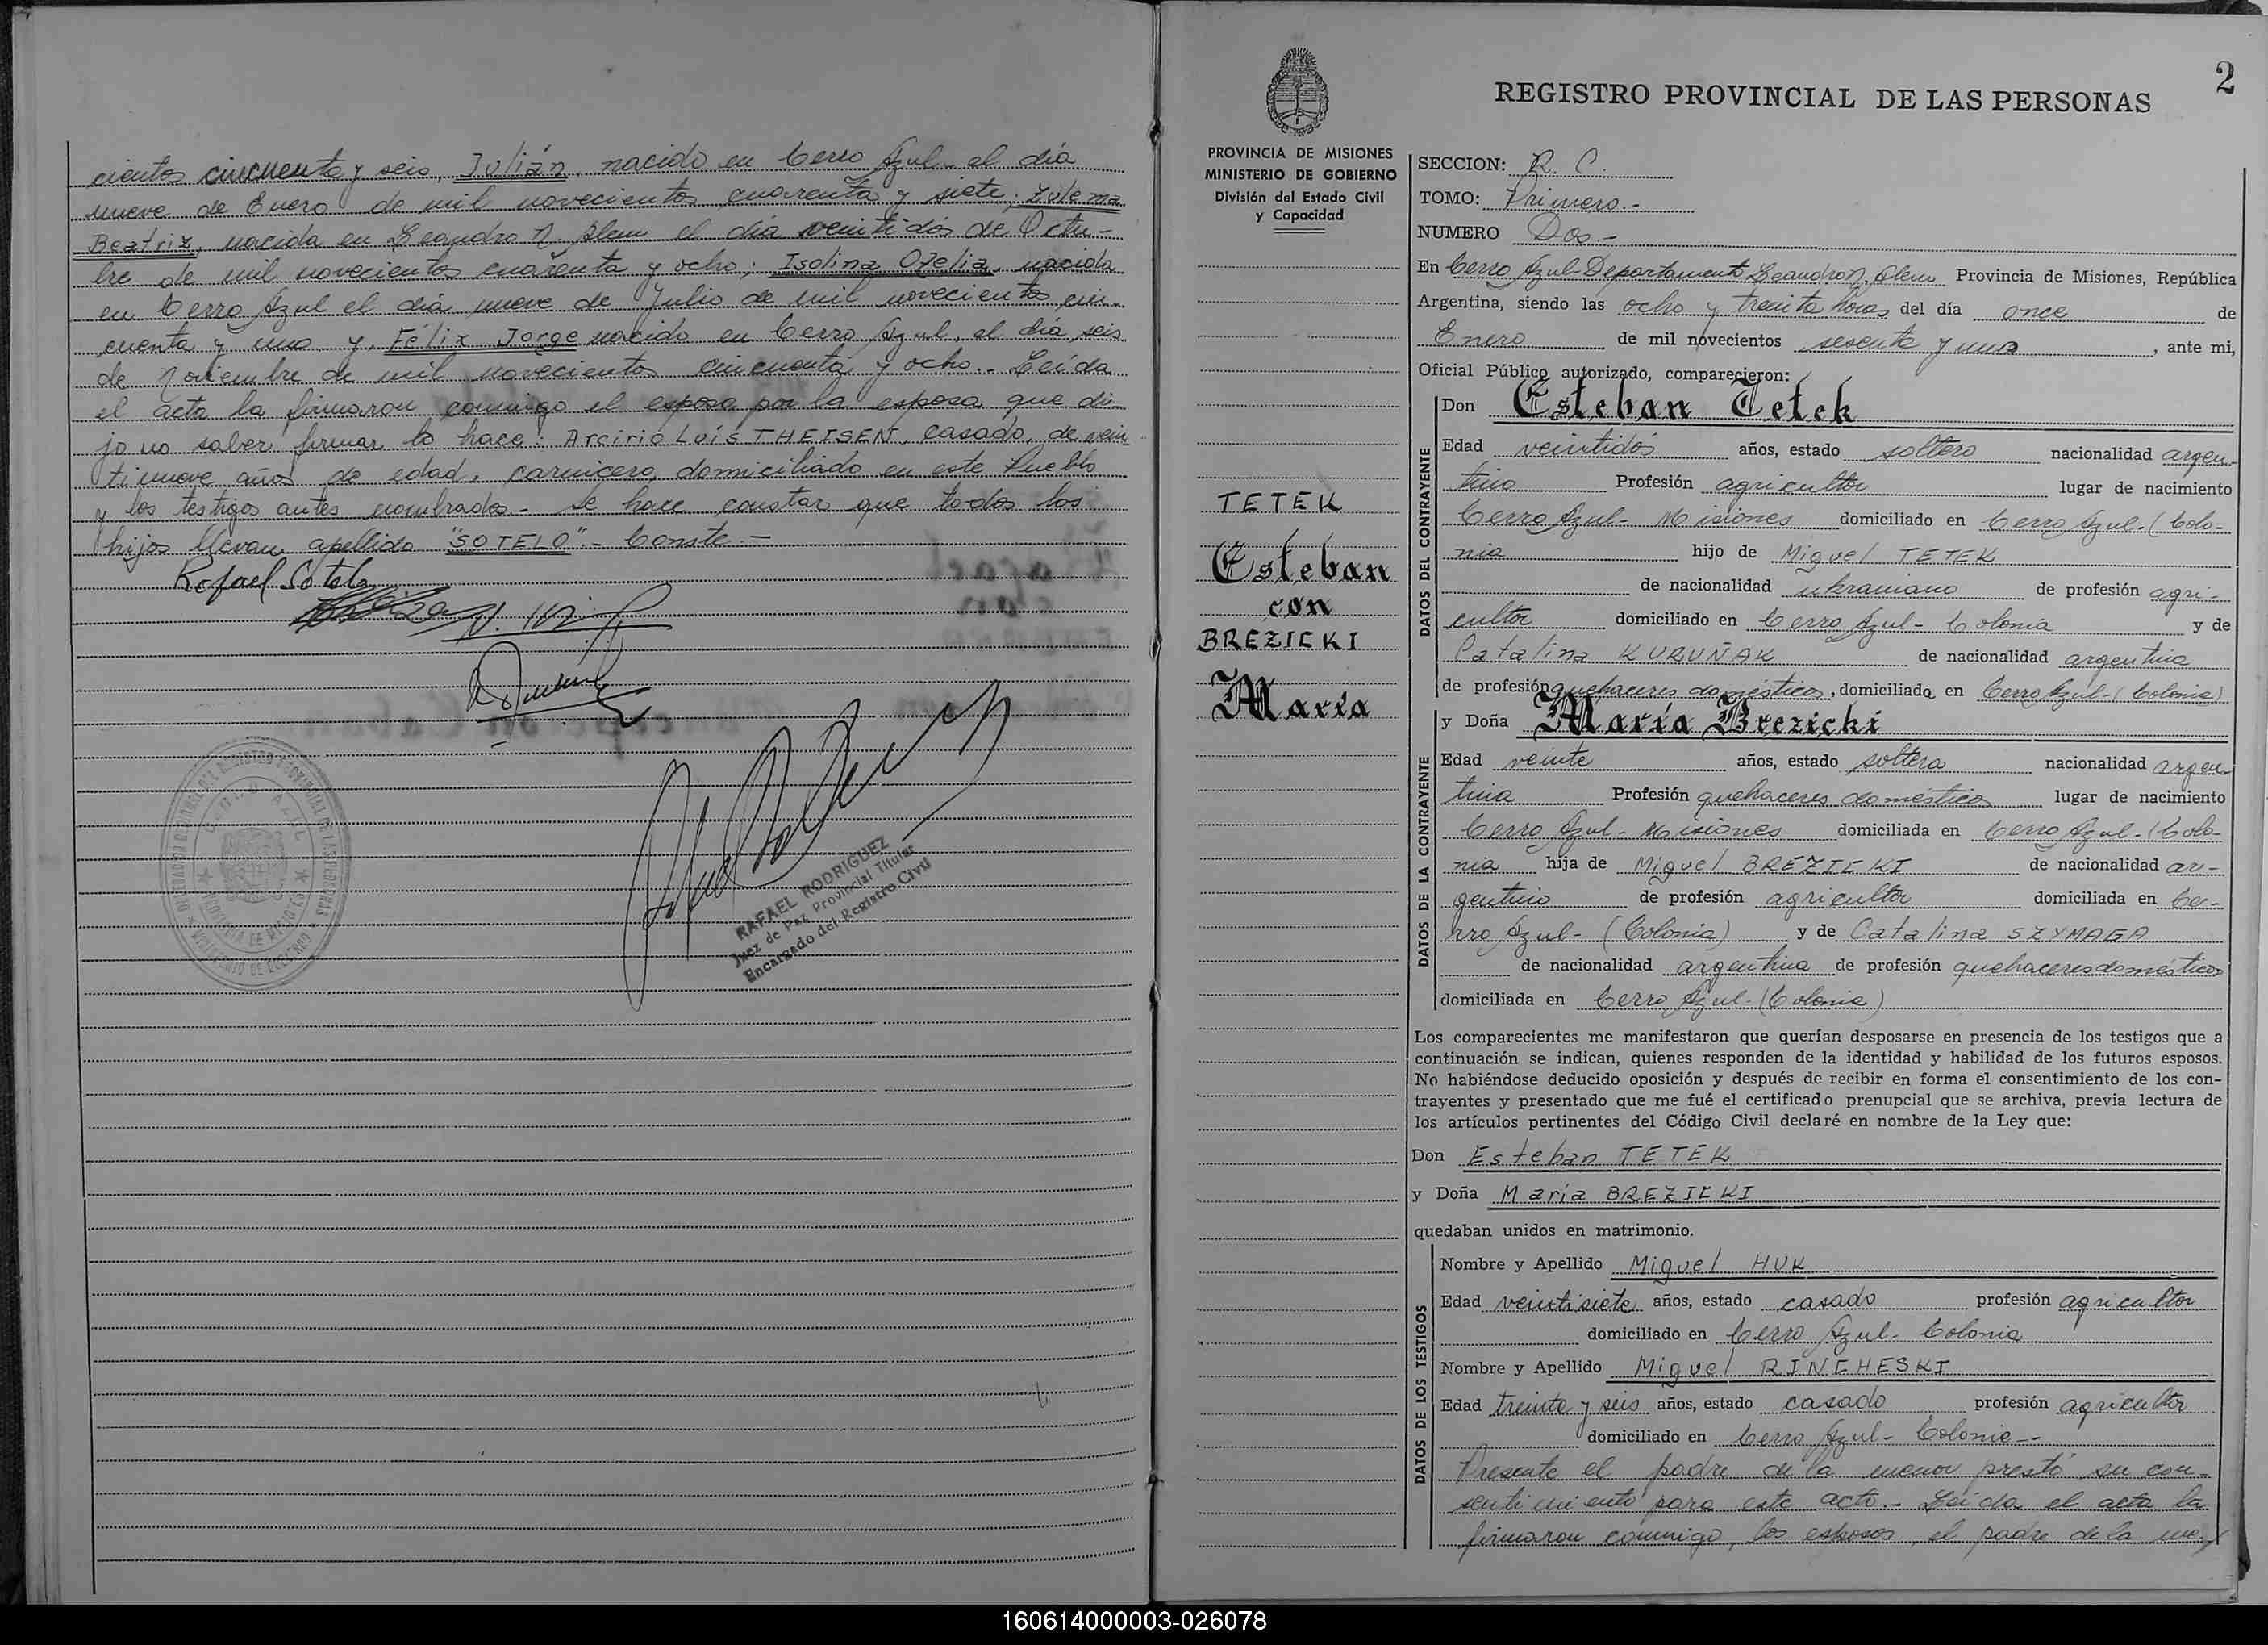 cientos cincuenta y seis, Julián, nacido en Cerro Azul el día
nueve de Enero de mil novecientos cuarenta y siete; Zulema
Beatriz, nacida en Leandro N. Alem el día veintidós de Octu-
bre de mil novecientos cuarenta y ocho; Isolina Ofelia, nacida
en Cerro Azul el día nueve de Julio de mil novecientos cin-
cuenta y uno y Félix Jorge nacido en Cerro Azul, el día seis
de Noviembre de mil novecientos cincuenta y ocho.. Leída
el acta la firmaron conmigo el esposo por la esposa que di-
jo no saber firmar lo hace: Arcirio Luis THEISEN, casado, de vein
tinueve años de edad, carnicero, domiciliado en este Pueblo
y los testigos antes nombrados- se hace constar que todos los
hijos llevan apellido "SOTELO".- Conste -
Rafael Sotelo
RAFAEL RODRIGUEZ
Juez de Paz Provincial Titular
Encargado del Registro Civil
2
REGISTRO PROVINCIAL DE LAS PERSONAS
PROVINCIA DE MISIONES
MINISTERIO DE GOBIERNO
División del Estado Civil
y Capacidad
TETEK
Esteban
con
BREZICKI
María
SECCION: R. C.
TOMO: Primero.-
NUMERO Dos.-
En Cerro Azul-Departamento Leandro N. Alem Provincia de Misiones, República
Argentina, siendo las ocho y treinta horas del día once de
Enero de mil novecientos sesenta y uno, ante mi,
Oficial Público autorizado, comparecieron:
DATOS DEL CONTRAYENTE
Don Esteban Tetek
Edad veintidós años, estado soltero nacionalidad argen-
tino Profesión agricultor lugar de nacimiento
Cerro Azul- Misiones domiciliado en Cerro Azul-(Colo-
nia hijo de Miguel TETEK
de nacionalidad ukraniano de profesión agri-
cultor domiciliado en Cerro Azul- Colonia y de
Catalina KURUÑAK de nacionalidad argentina
de profesión quehaceres domésticos, domiciliada en Cerro Azul-(Colonia)
DATOS DE LA CONTRAYENTE
y Doña María Brezicki
Edad veinte años, estado soltera nacionalidad argen-
tina Profesión quehaceres domésticos lugar de nacimiento
Cerro Azul- Misiones domiciliada en Cerro Azul-(Colo-
nia hija de Miguel BREZICKI de nacionalidad ar-
gentino de profesión agricultor domiciliada en Ce-
rro Azul- (Colonia) y de Catalina SZYMAGA
de nacionalidad argentina de profesión quehaceres domésticos
domiciliada en Cerro Azul-(Colonia)
Los comparecientes me manifestaron que querían desposarse en presencia de los testigos que a
continuación se indican, quienes responden de la identidad y habilidad de los futuros esposos.
No habiéndose deducido oposición y después de recibir en forma el consentimiento de los con-
trayentes y presentado que me fué el certificado prenupcial que se archiva, previa lectura de
los artículos pertinentes del Código Civil declaré en nombre de la Ley que:
Don Esteban TETEK
y Doña María BREZICKI
quedaban unidos en matrimonio.
DATOS DE LOS TESTIGOS
Nombre y Apellido Miguel HUK
Edad veintisiete años, estado casado profesión agricultor
domiciliado en Cerro Azul- Colonia
Nombre y Apellido Miguel RINCHESKI
Edad treinta y seis años, estado casado profesión agricultor
domiciliado en Cerro Azul- Colonia--
Presente el padre de la menor prestó su con-
sentimiento para este acto.- Leída el acta la
firmaron conmigo, los esposos, el padre de la me-
160614000003-026078